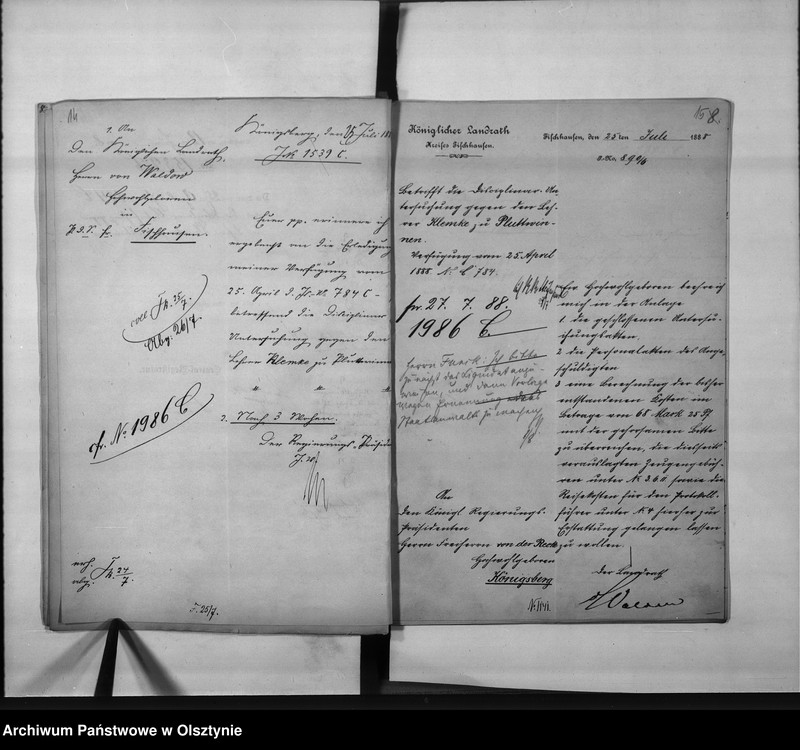 14
1. An
den Königlichen Landrath,
Herrn von Waldow
Hochwohlgeboren
in
Fischhausen.
Königsberg, den Juli 188
1539 C.
Euer pp. erinnere ich
ergebenst an die Erledigung
meiner Verfügung vom
25. April d. Js. N. 784 C -
betreffend die Disciplinar-
Untersuchung gegen den
Lehrer Klemke zu Pluttwinnen
" " "
2. Nach 3 Wochen.
Der Regierungs-Präsident
J. 25/7.
Abg. 26/7.
cfr. No. 1986 C
27/7.
J. 25/7.
158.
Königlicher Landrath
Kreises Fischhausen.
Fischhausen, den 25ten Juli 1888
J. No.
Betrifft die Disciplinar-Un-
tersuchung gegen den Leh-
rer Klemke zu Pluttwin-
nen.
Verfügung vom 25. April
1888. N. C 784.
pr. 27. 7. 88.
1986 C.
Herrn Frank: Ich bitte
zunächst das
und dann Vorlage
wegen Ernennung
Staatsanwalts zu machen
Euer Hochwohlgeboren beehre ich
mich in der Anlage
1. die geschlossenen Untersu-
chungsakten.
2 die Personalakten des Ange-
schuldigten
3 eine Berechnung der bisher
entstandenen Kosten im
Betrage von 68 Mark 25 Pf
mit der gehorsamen Bitte
zu überreichen, die diesseits
verauslagten Zeugengebüh-
ren unter N. 3.6.8 sowie die
Reisekosten für den Protokoll-
führer unter N. 4 hierher zur
Erstattung gelangen lassen
zu wollen.
An
den Königl. Regierungs-
Präsidenten
Herrn Freiherrn von der Reck
Hochwohlgeboren
Königsberg
Der Landrath
Waldow
Archiwum Państwowe w Olsztynie